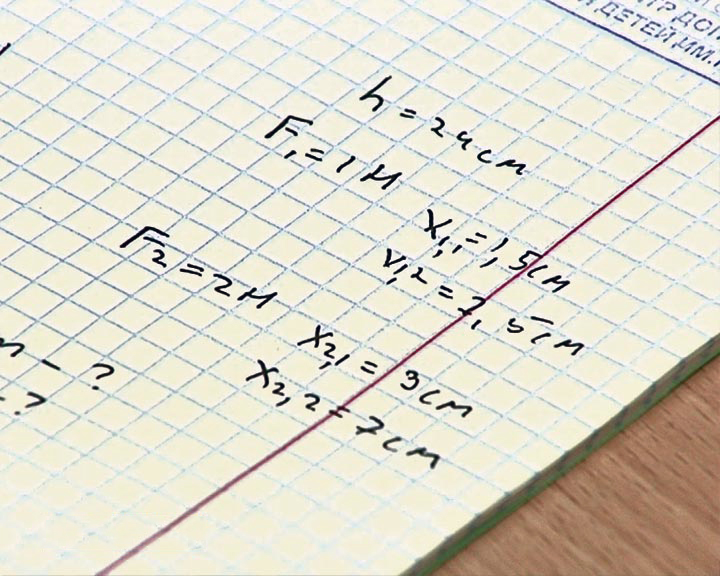 ТР ДОП
И ДЕТЕЙ ИМ.
h = 24 см
F₁ = 1 Н
x₁,₁ = 1,5 см
x₁,₂ = 2,5 см
F₂ = 2 Н
x₂,₁ = 3 см
x₂,₂ = 7 см
m - ?
- ?